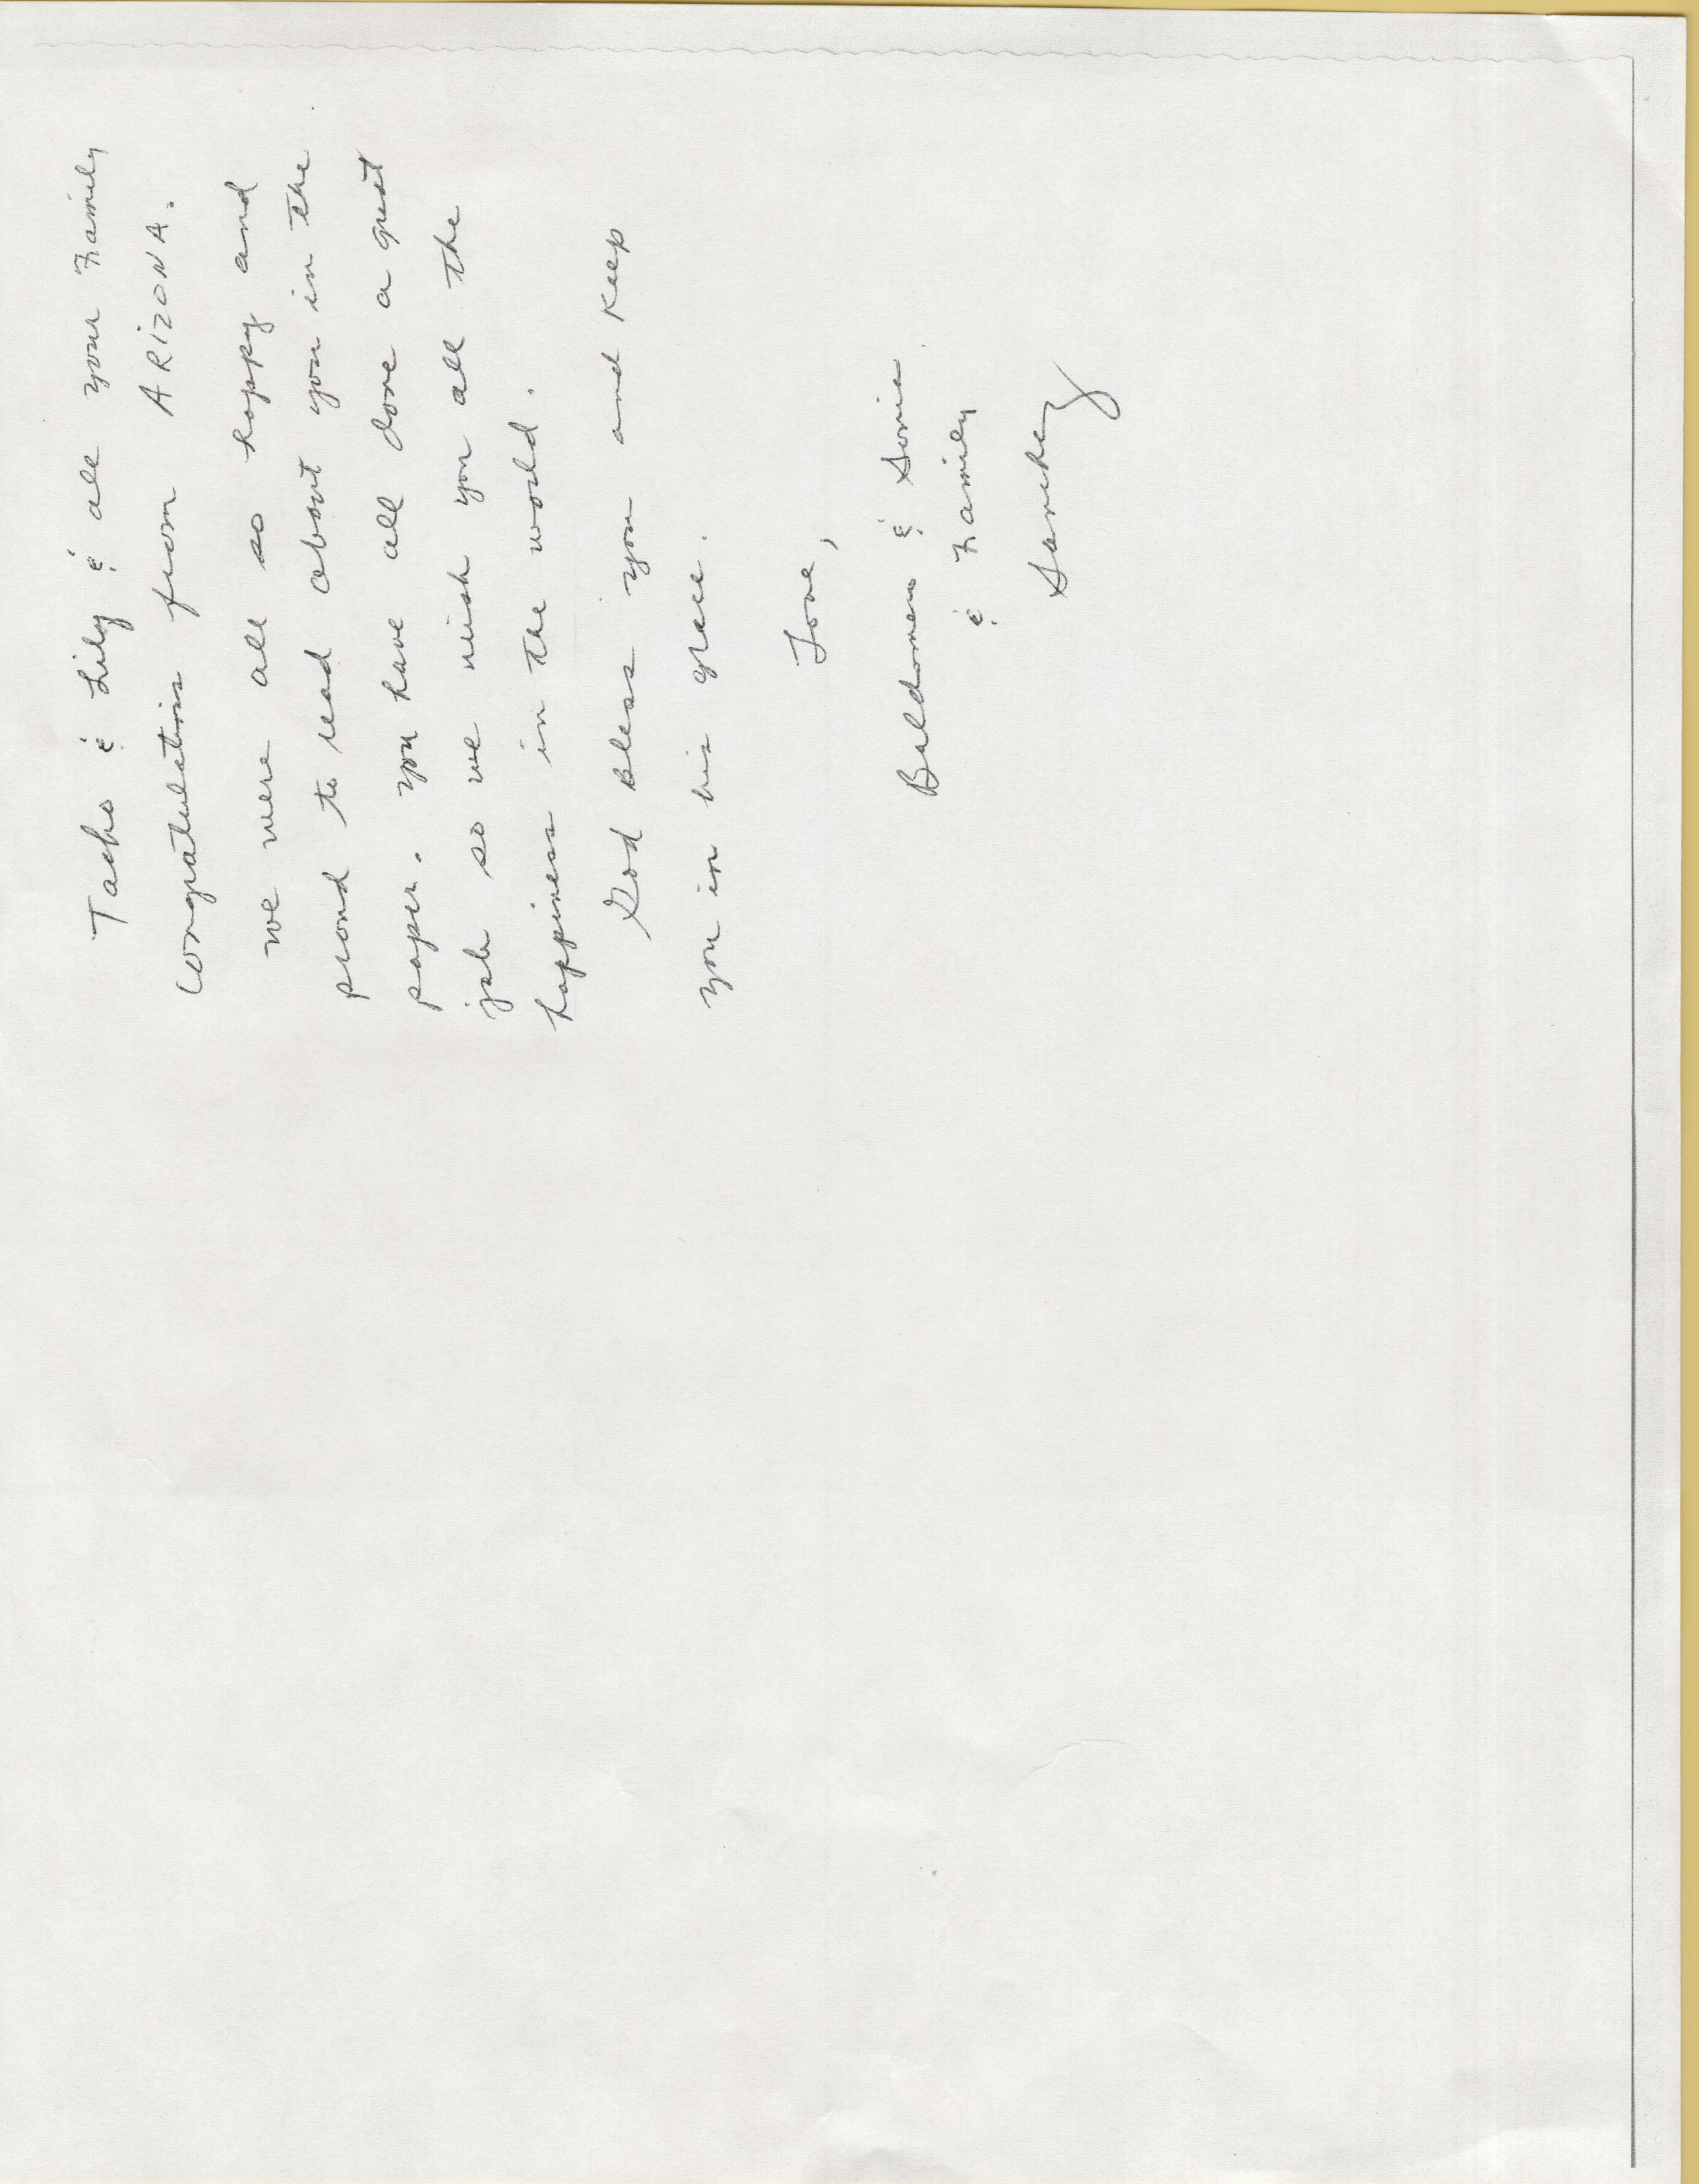 Tacho & Lily & all your Family
Congratulations from ARIZONA.
we were all so happy and
proud to read about you in the
paper. you have all done a great
job so we wish you all the
happiness in the world.
God Bless you and Keep
you in his grace.
Love,
Baldomero & Sonia
& Family
Sanchez